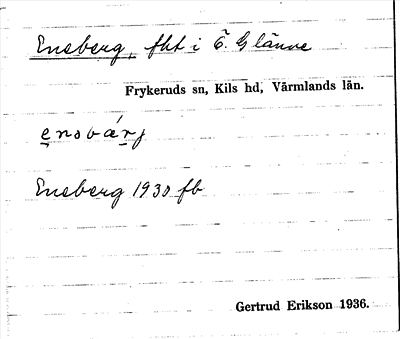 Eneberg, fht i Ö. Glänne
Frykeruds sn, Kils hd, Värmlands län.
Eneberg 1930 fb
Gertrud Erikson 1936.